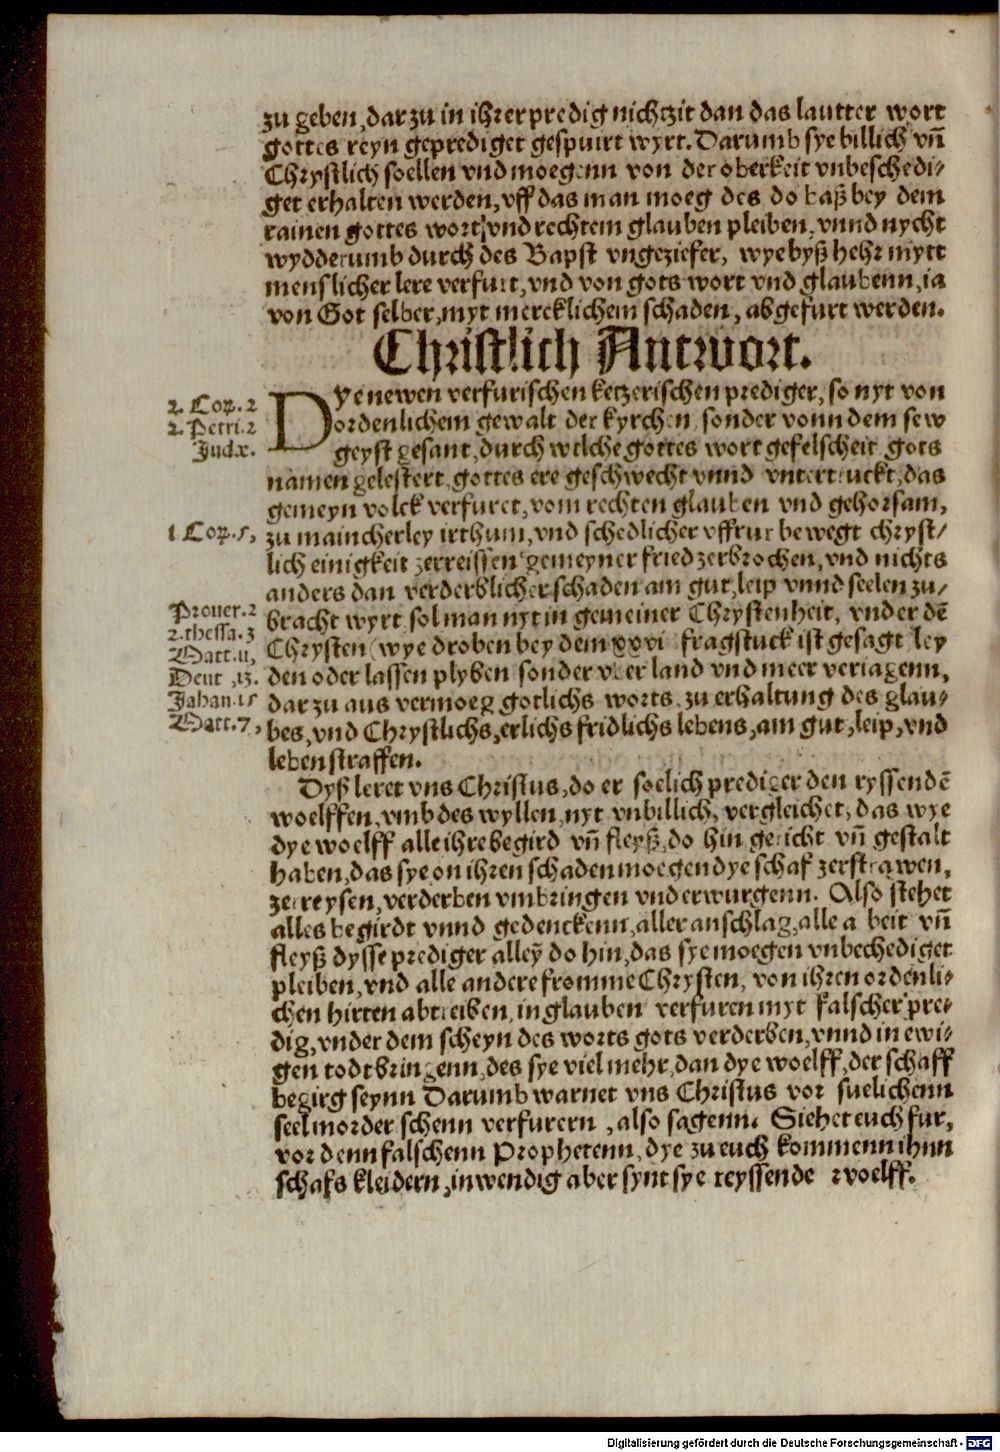 zu geben, darzu in ihrer predig nichtzit dan das lautter wort
gottes reyn geprediget gespuirt wyrt. Darumb sye billich vñ
Chrystlich soellen vnd moegenn von der oberkeit vnbeschedi-
get erhalten werden, vff das man moeg des do baß bey dem
rainen gottes wort, vnd rechtem glauben pleiben, vnnd nycht
wydderumb durch des Bapst vngeziefer, wye byß hehr mytt
menslicher lere verfurt, vnd von gots wort vnd glaubenn, ia
von Got selber, myt mercklichem schaden, abgefurt werden.
Christlich Antwort.
DYe newen verfurischen ketzerischen prediger, so nyt von
ordenlichem gewalt der kyrchen, sonder vonn dem sew
geyst gesant, durch welche gottes wort gefelscheit gots
namen gelestert, gottes ere geschwecht vnnd vntertruckt, das
gemeyn volck verfuret, vom rechten glauben vnd gehorsam,
zu maincherley irthum, vnd schedlicher vffrur bewegt chryst/
lich einigkeit zerreissen gemeyner fried zerbrochen, vnd nichts
anders dan verderblicher schaden am gut, leip vnnd seelen zu/
bracht wyrt sol man nyt in gemeiner Chrystenheit, vnder dē
Chrysten (wye droben bey dem xxvi fragstuck ist gesagt ley
den oder lassen plyben sonder vber land vnd meer veriagenn,
darzu aus vermoeg gotlichs worts, zu erhaltung des glau-
bes, vnd Chrystlichs, erlichs fridlichs lebens, am gut, leip, vnd
leben straffen.
2. Cor. 2
2. Petri. 2
Judæ.
1 Cor. 5,
Prouer. 2
2. thessa. 3
Matt. 11,
Deut, 13.
Jahan. 15
Matt. 7,
Dyß leret vns Christus, do er soelich prediger den ryssendē
woelffen, vmb des wyllen, nyt vnbillich, vergleichet, das wye
dye woelff alle ihre begird vñ fleyß, do hin gericht vñ gestalt
haben, das sye on ihren schaden moegen dye schaf zerstrawen,
zerreysen, verderben vmbringen vnd erwurgenn. Also stehet
alles begirdt vnnd gedenckenn, aller anschlag, alle arbeit vñ
fleyß dysse prediger alleÿ do hin, das sye moegen vnbechediget
pleiben, vnd alle andere fromme Chrysten, von ihren ordenli-
chen hirten abtreiben, in glauben verfuren myt falscher pre-
dig, vnder dem scheyn des worts gots verderben, vnnd in ewi-
gen todt bringenn, des sye viel mehr, dan dye woelff, der schaff
begirg seynn Darumb warnet vns Christus vor suelichenn
seelmorder schenn verfurern, also sagenn. Siehet euch fur,
vor denn falschenn Prophetenn, dye zu euch kommenn ihnn
schafs kleidern, inwendig aber synt sye reyssende woelff.
Digitalisierung gefördert durch die Deutsche Forschungsgemeinschaft - DFG